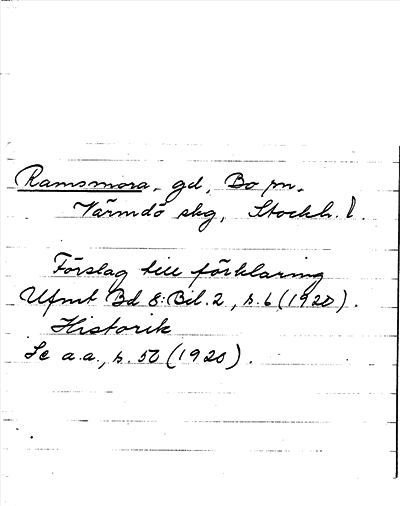 Ramsmora, gd, Bo sn.
Värmdö skg, Stockh. l.
Förslag till förklaring
Ufmt Bd 8: Bil. 2, s. 6 (1920).
Historik
Se a.a., s. 50 (1920).